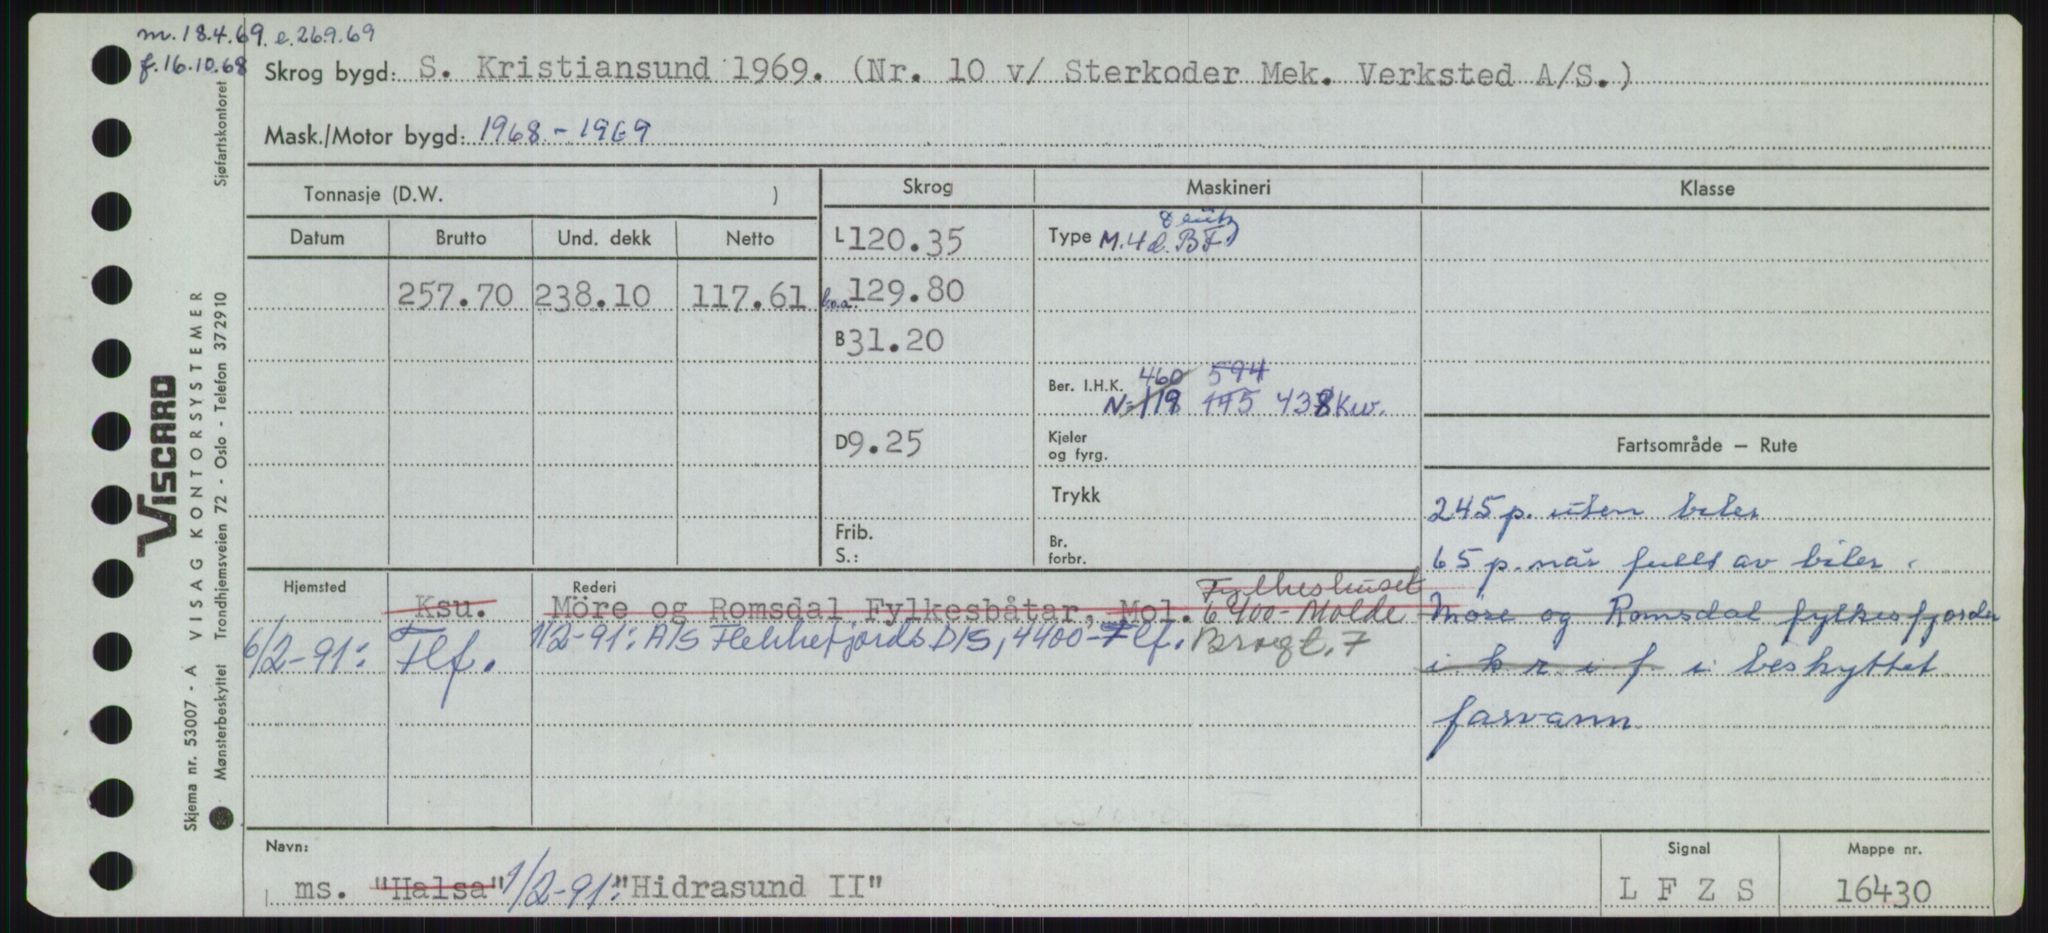 m. 18.4.69. e. 26.9.69
f. 16.10.68
Skrog bygd: S. Kristiansund 1969. (Nr. 10 v/ Sterkoder Mek. Verksted A/S.)
Mask./Motor bygd: 1968 - 1969
Tonnasje (D.W. )
Skrog
Maskineri
Klasse
Datum Brutto Und. dekk Netto
L 120.35
Type M. 4 d. BF Deutz
257.70 238.10 117.61
l.o.a. 129.80
B 31.20
Ber. I.H.K. 460 594
N = 118 145 438 Kw.
D 9.25
Kjeler
og fyrg.
Fartsområde — Rute
Trykk
245 p. uten biler
Frib.
S.:
Br.
forbr.
65 p. når fullt av biler.
Hjemsted
Rederi
Fylkeshuset
Ksu. Möre og Romsdal Fylkesbåtar, Mol. 6400 - Molde
Møre og Romsdal fylkes fjorder
6/2-91: Flf. 1/2-91: A/S Flekkefjords D/S, 4400 - Flf. Brogt. 7
i k r. i f i beskyttet
farvann
Navn:
ms. "Halsa" 1/2-91: "Hidrasund II"
Signal
L F Z S
Mappe nr.
16430
VISCARD
Skjema nr. 53007 - A VISAG KONTORSYSTEMER
Mønsterbeskyttet Trondhjemsveien 72 - Oslo - Telefon 372910
Sjøfartskontoret